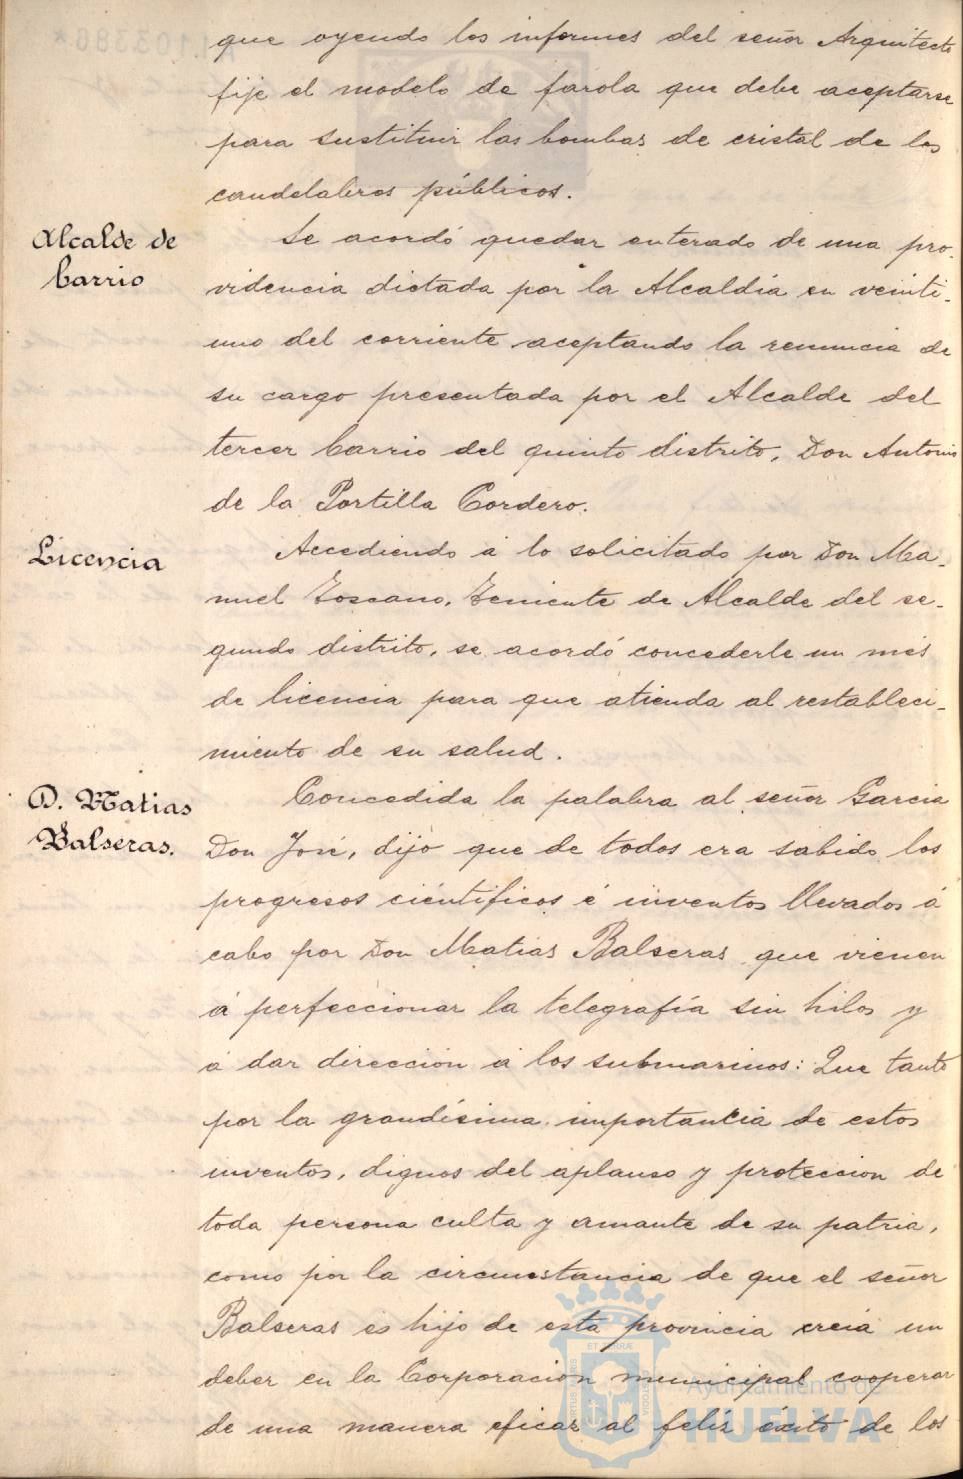 que oyendo los informes del señor Arquitecto
fije el modelo de farola que debe aceptarse
para sustituir las bombas de cristal de los
candelabros públicos.
Alcalde de
barrio
Se acordó quedar enterado de una pro-
videncia dictada por la Alcaldía en veinti-
uno del corriente aceptando la renuncia de
su cargo presentada por el Alcalde del
tercer barrio del quinto distrito, Don Antonio
de la Portilla Cordero.
Licencia
Accediendo á lo solicitado por Don Ma-
nuel Toscano, Teniente de Alcalde del se-
gundo distrito, se acordó concederle un mes
de licencia para que atienda al restableci-
miento de su salud.
D. Matias
Balseras.
Concedida la palabra al señor Garcia
Don José, dijo que de todos era sabido los
progresos científicos é inventos llevados á
cabo por Don Matias Balseras que vienen
á perfeccionar la telegrafía sin hilos y
á dar dirección á los submarinos: Que tanto
por la grandísima importancia de estos
inventos, dignos del aplauso y proteccion de
toda persona culta y amante de su patria,
como por la circunstancia de que el señor
Balseras es hijo de esta provincia creía un
deber en la Corporación municipal cooperar
de una manera eficaz al feliz éxito de los
Ayuntamiento de
HUELVA